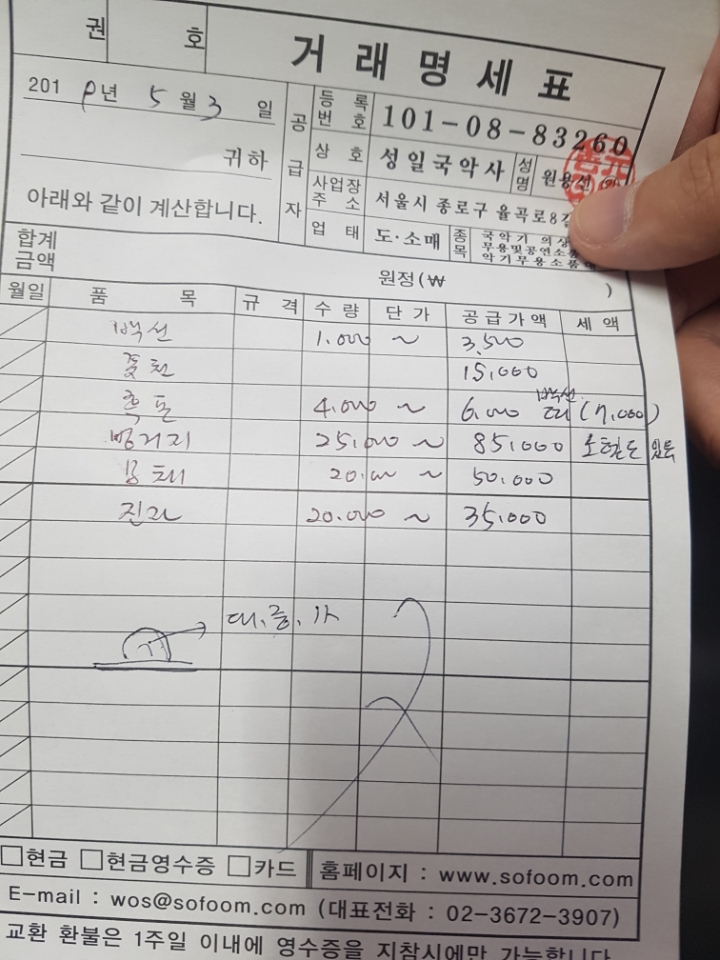 권 호
거래명세표
201 9년 5월 3일
귀하
아래와 같이 계산합니다.
공급자
등록번호 101-08-83260
상호 성일국악사 성명 원용선
사업장주소 서울시 종로구 율곡로8길
업태 도·소매 종목 국악기 의상 무용및공연소품 악기무용소품
합계금액 원정(₩ )
월일 품목 규격 수량 단가 공급가액 세액
백선 1.000 ~ 3,500
15,000
4.000 ~ 6.000 백선 대 (7,000)
벙거지 25,000 ~ 85,000
20.000 ~ 50.000
20.000 ~ 35,000
대.중.
□현금 □현금영수증 □카드 홈페이지 : www.sofoom.com
E-mail : wos@sofoom.com (대표전화 : 02-3672-3907)
교환 환불은 1주일 이내에 영수증을 지참시에만 가능합니다